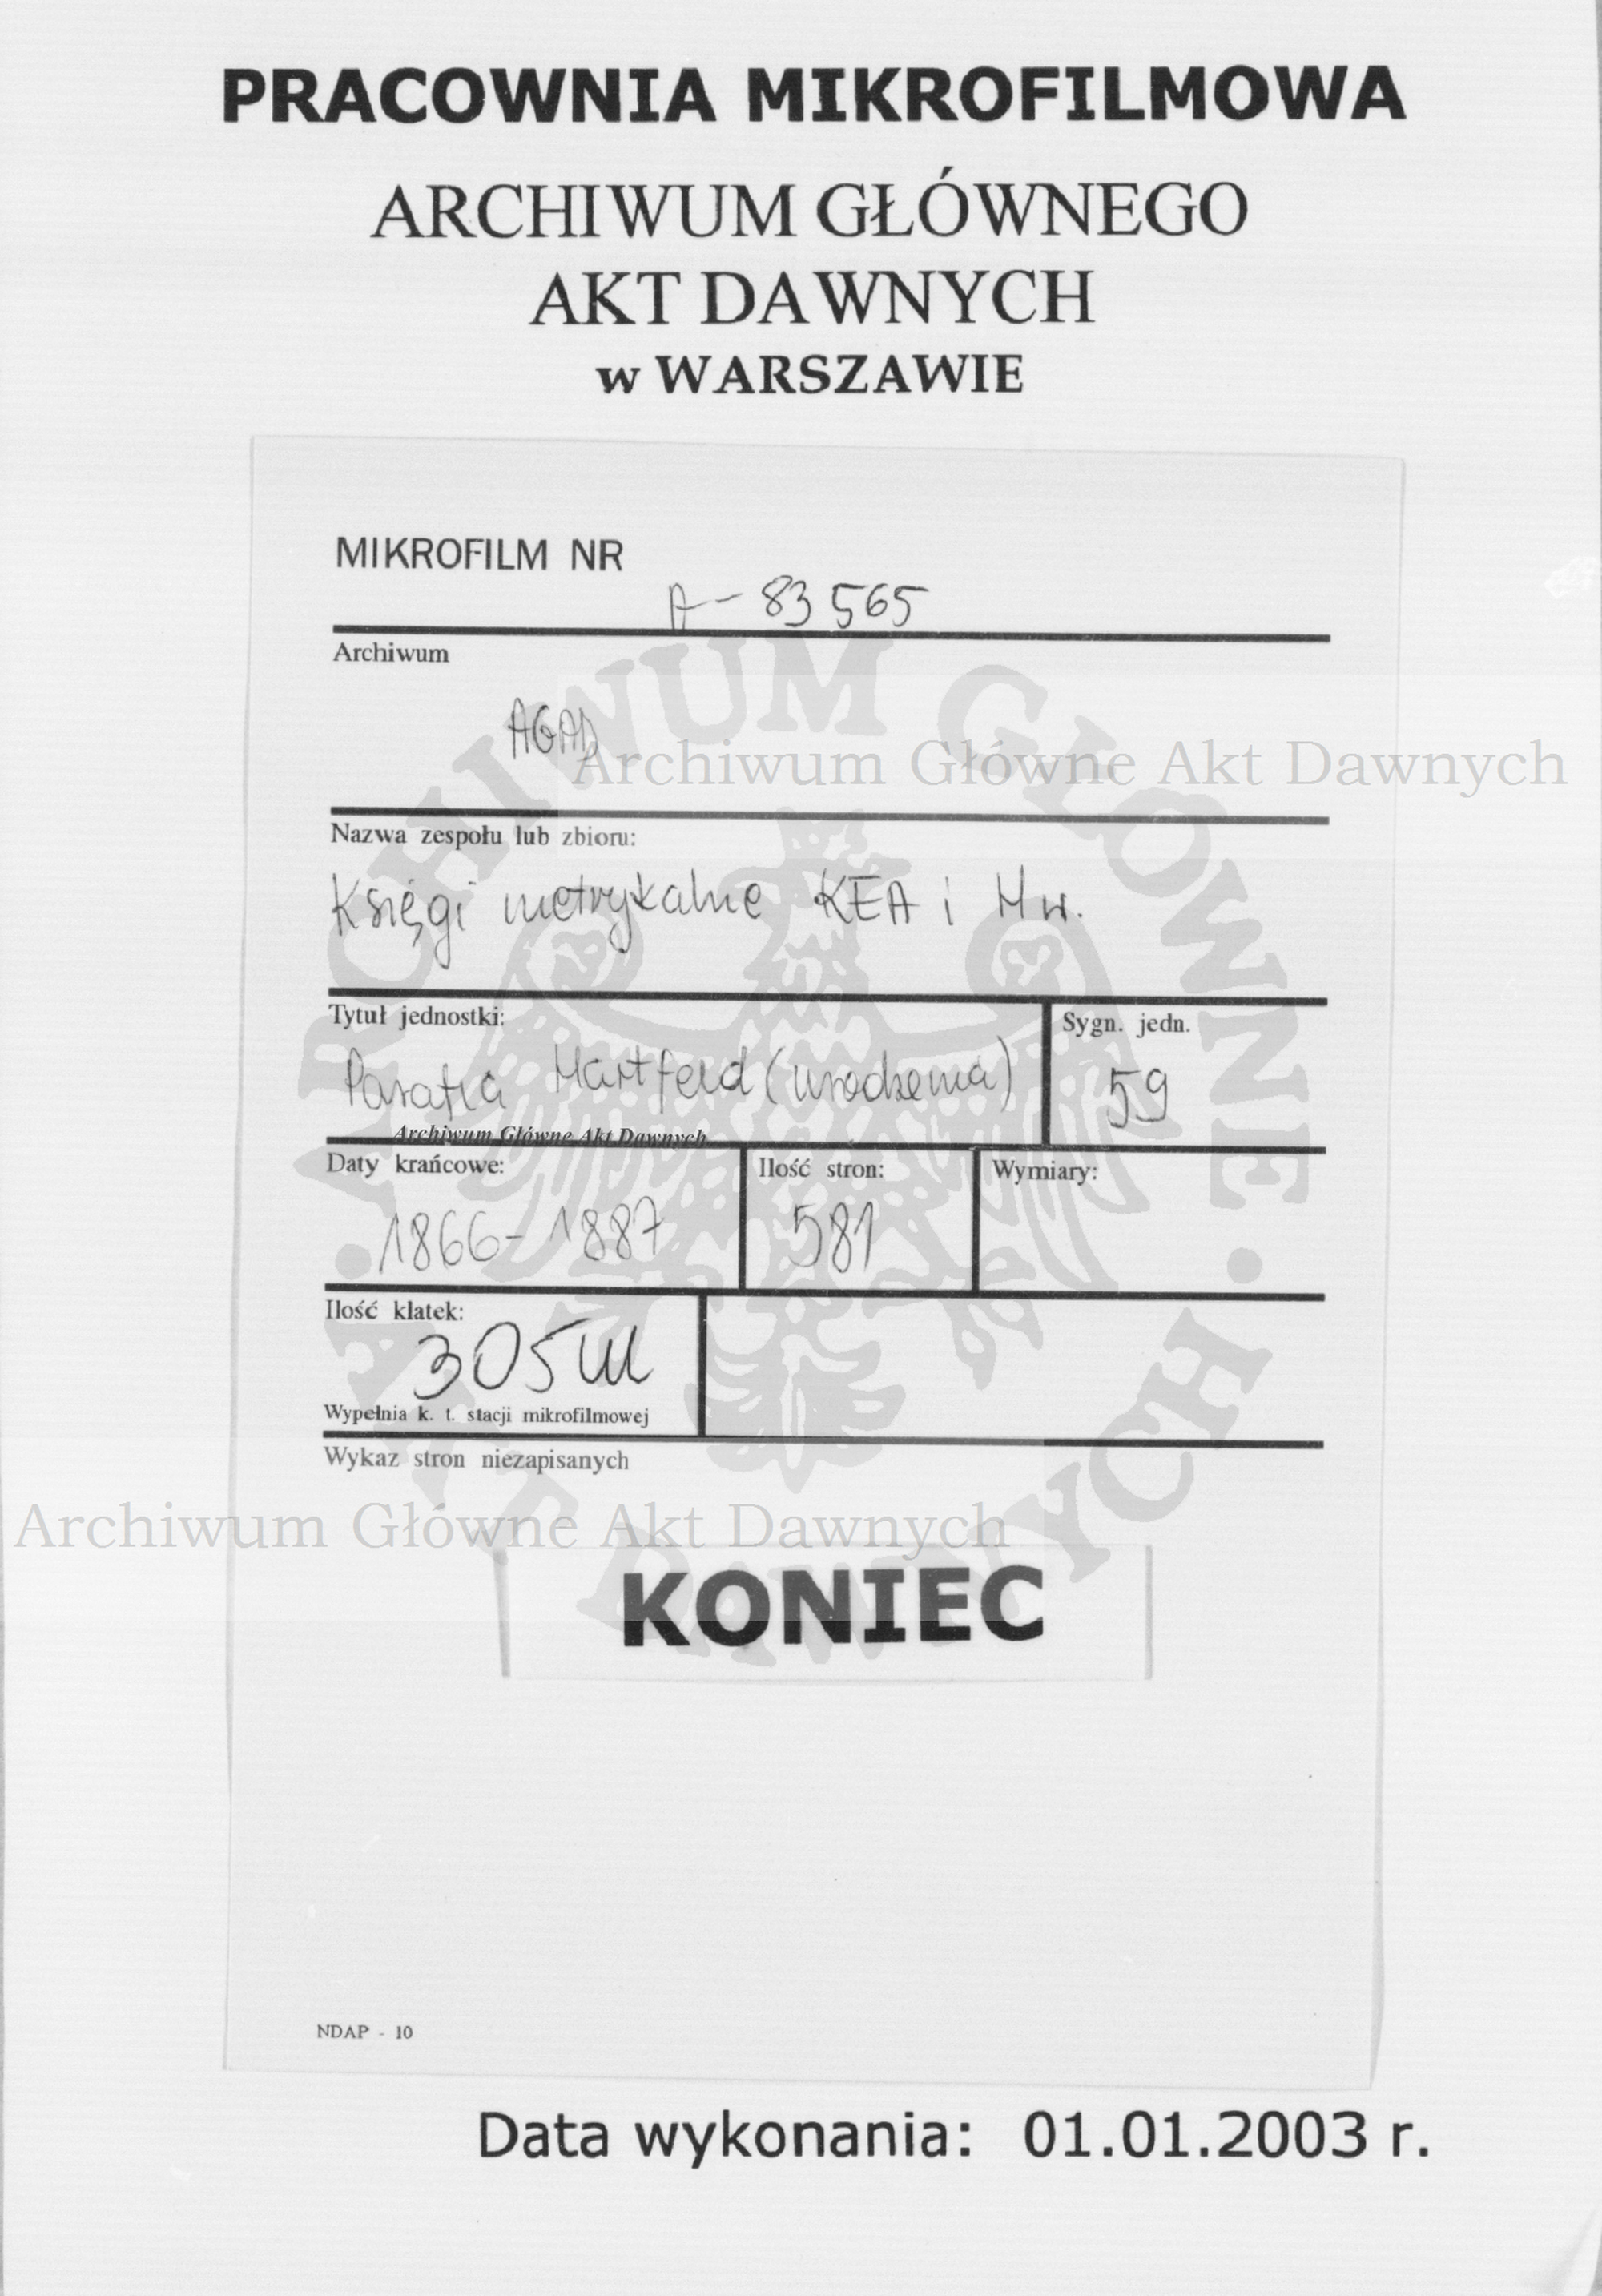 PRACOWNIA MIKROFILMOWA
ARCHIWUM GŁÓWNEGO
AKT DAWNYCH
w WARSZAWIE
MIKROFILM NR
A-83 565
Archiwum
AGAD
Archiwum Główne Akt Dawnych
Nazwa zespołu lub zbioru:
Księgi metrykalne KEA i Hw.
Tytuł jednostki:
Parafia Hartfeld (urodzenia)
Sygn. jedn.
59
Archiwum Główne Akt Dawnych
Daty krańcowe:
1866-1887
Ilość stron:
581
Wymiary:
Ilość klatek:
305
Wypełnia k. t. stacji mikrofilmowej
Wykaz stron niezapisanych
Archiwum Główne Akt Dawnych
KONIEC
ARCHIWUM GŁÓWNE · AKT DAWNYCH ·
NDAP - 10
Data wykonania: 01.01.2003 r.